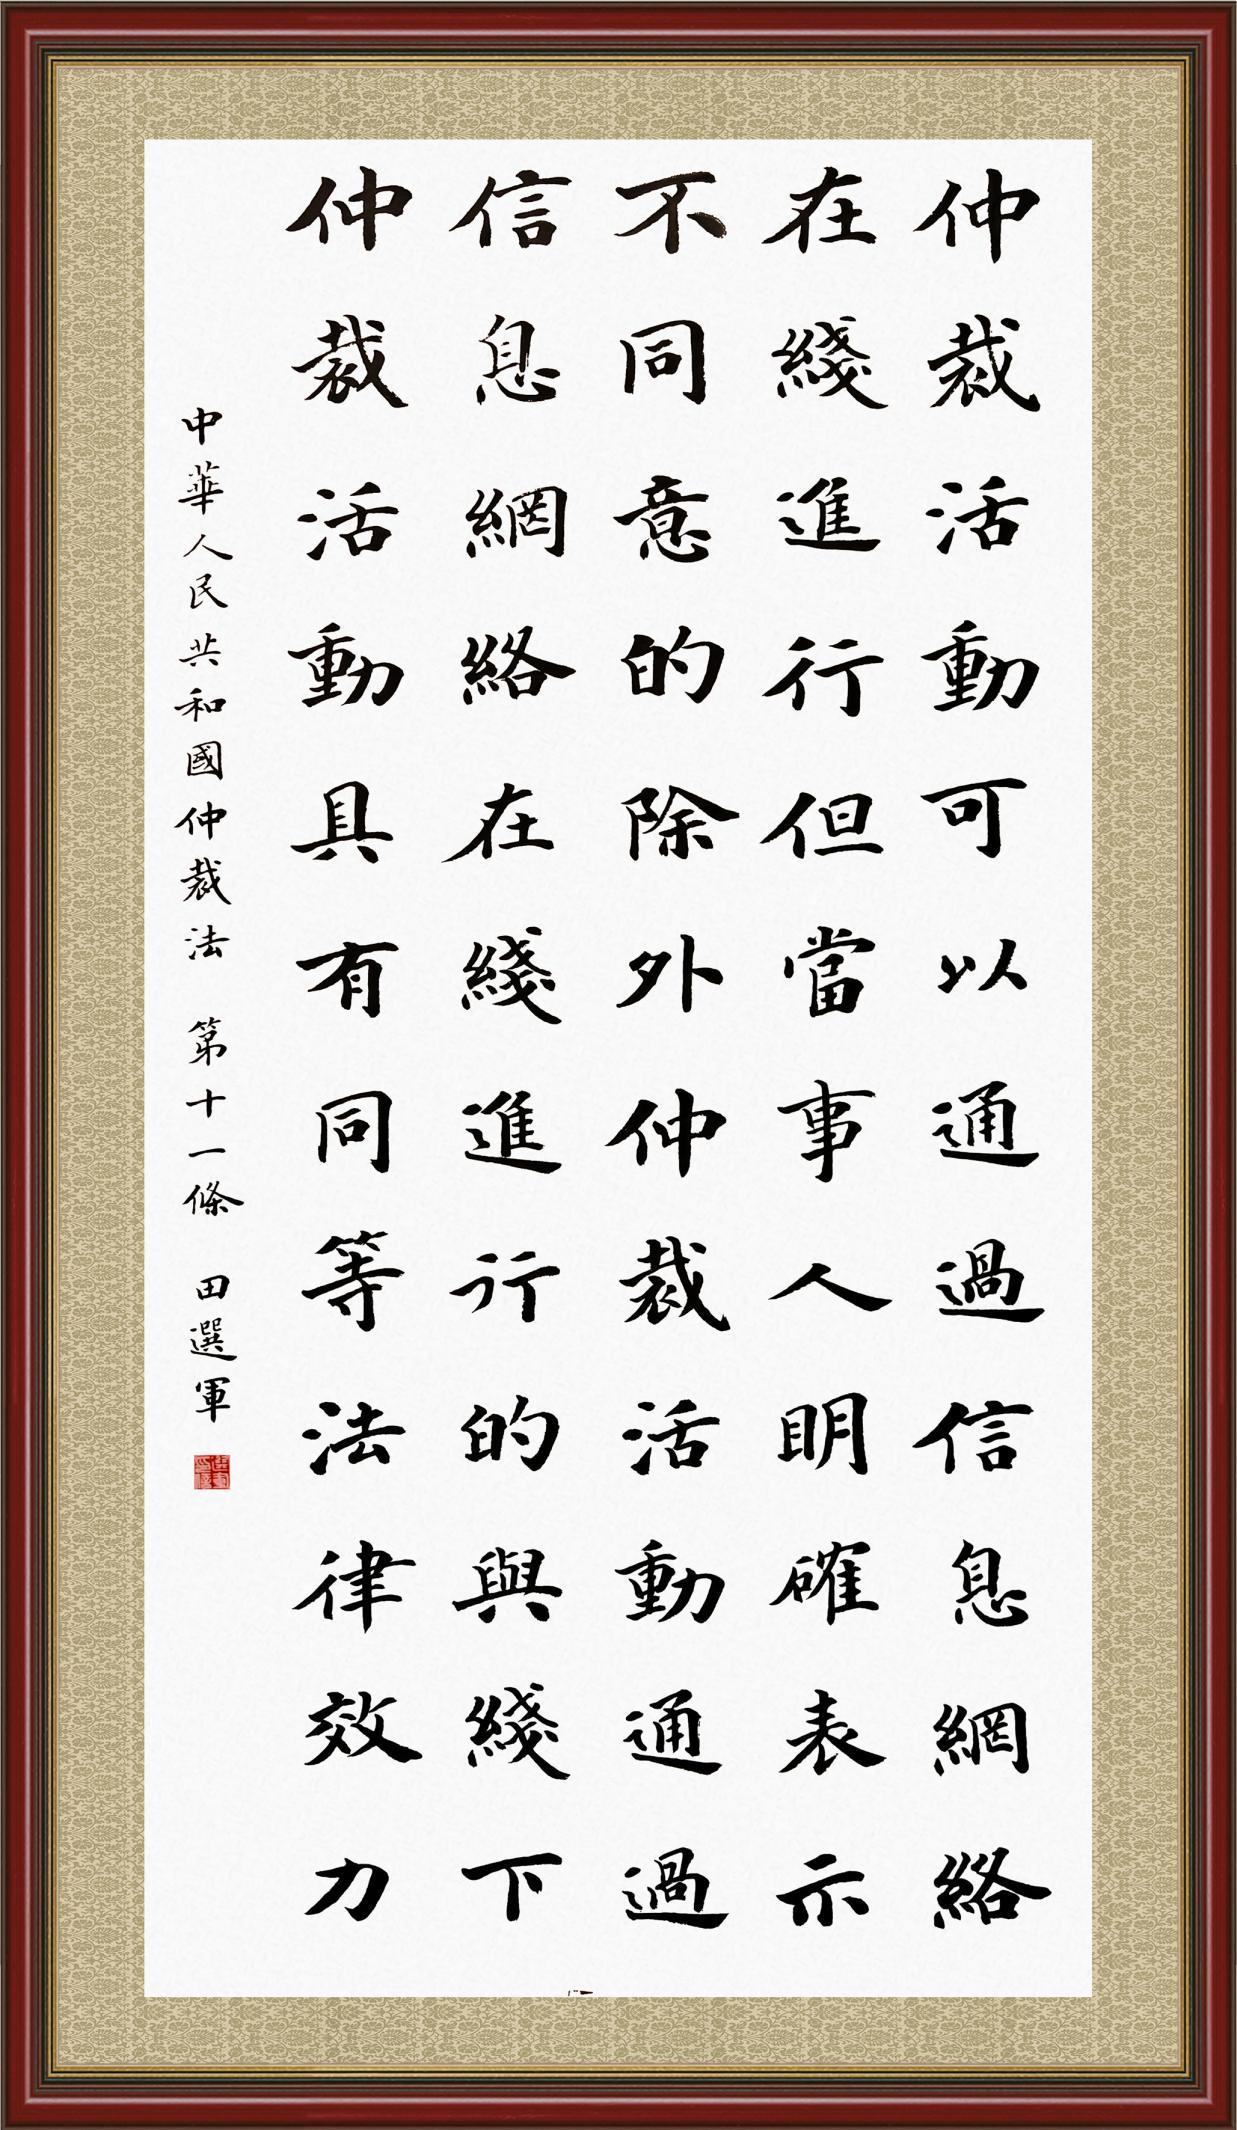 仲裁活動可以通過信息網絡
在綫進行但當事人明確表示
不同意的除外仲裁活動通過
信息網絡在綫進行的與綫下
仲裁活動具有同等法律效力
中華人民共和國仲裁法 第十一條 田選軍